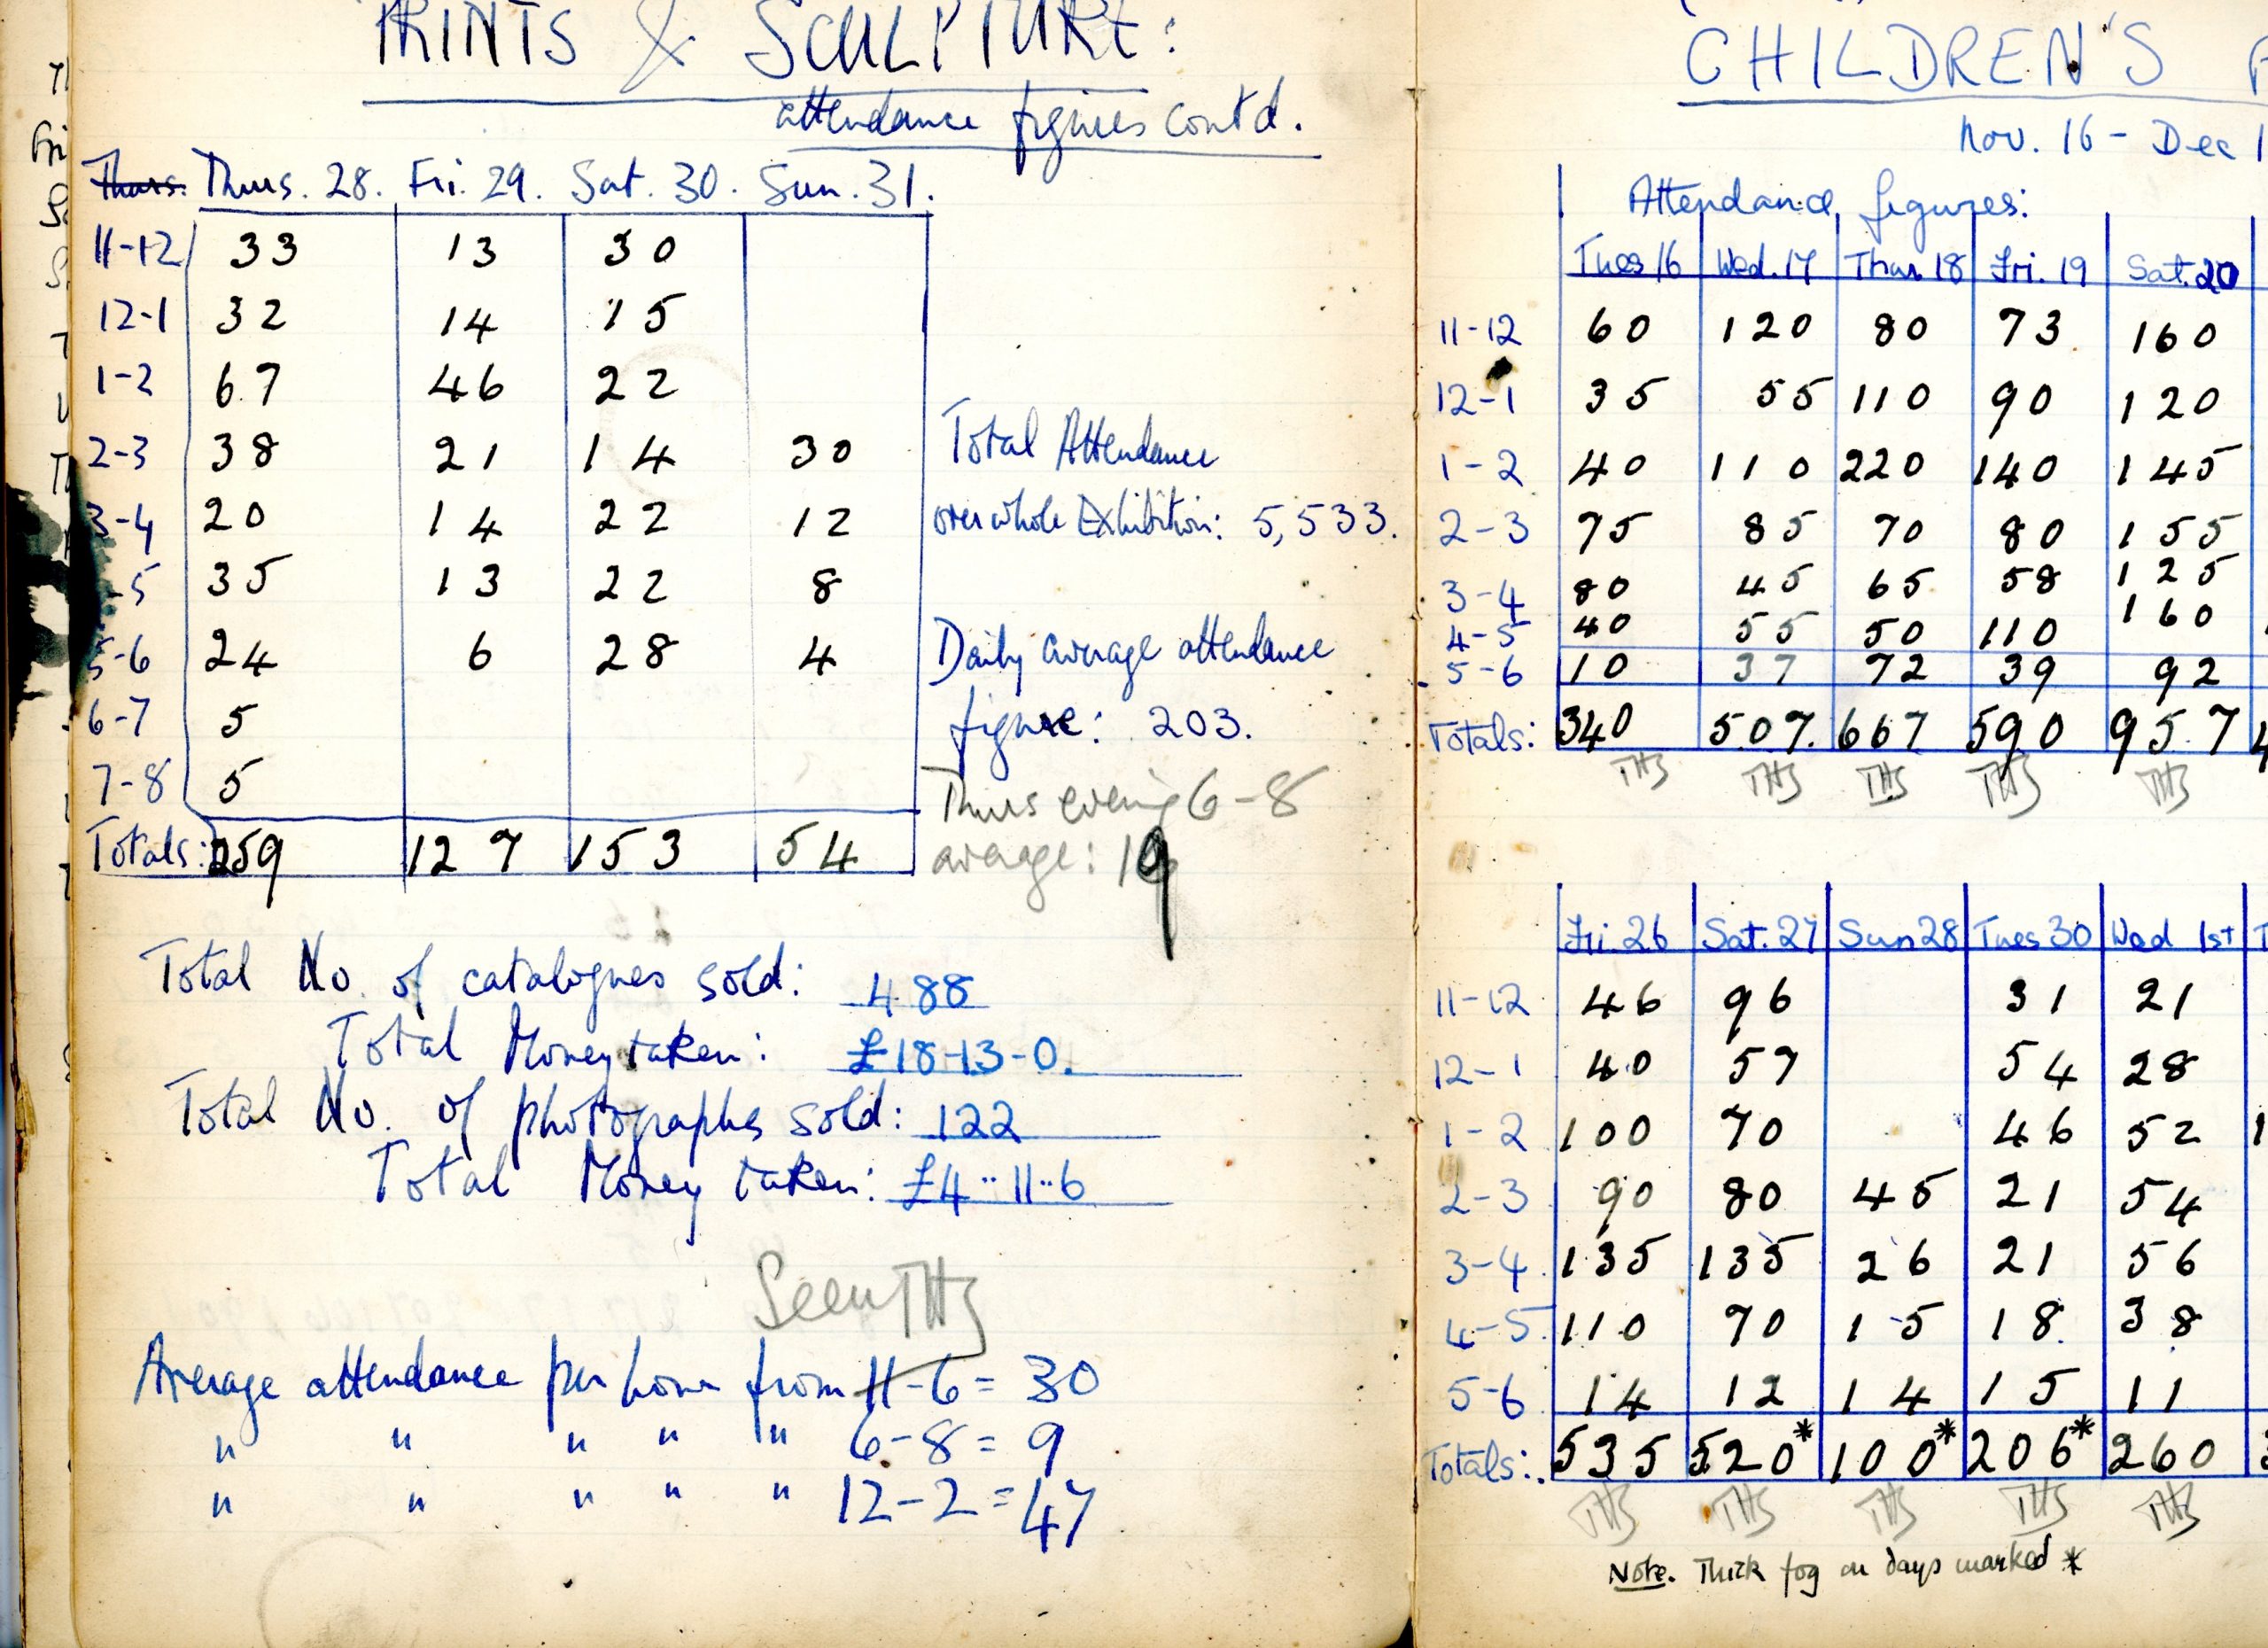 PRINTS & SCULPTURE:
attendance figures contd.
Thurs. Thurs. 28. Fri. 29. Sat. 30. Sun. 31.
11-12 33 13 30
12-1 32 14 15
1-2 67 46 22
2-3 38 21 14 30
3-4 20 14 22 12
-5 35 13 22 8
5-6 24 6 28 4
6-7 5
7-8 5
Totals: 259 127 153 54
Total Attendance
over whole Exhibition: 5,533.
Daily average attendance
figure: 203.
Thurs evening 6-8
average: 19
Total No. of catalogues sold: 488
Total Money taken: £18-13-0.
Total No. of photographs sold: 122
Total Money taken: £4..11..6
Seen THS
Average attendance per hour from 11-6 = 30
" " " " " 6-8 = 9
" " " " " 12-2 = 47
CHILDREN'S
Nov. 16 - Dec 1
Attendance figures:
Tues 16 Wed. 17 Thur 18 Fri. 19 Sat. 20
11-12 60 120 80 73 160
12-1 35 55 110 90 120
1-2 40 110 220 140 145
2-3 75 85 70 80 155
3-4 80 45 65 58 125
4-5 40 55 50 110 160
5-6 10 37 72 39 92
Totals: 340 507. 667 590 957 4
THS THS THS THS THS
Fri. 26 Sat. 27 Sun 28 Tues 30 Wed 1st T
11-12 46 96 31 21
12-1 40 57 54 28
1-2 100 70 46 52 1
2-3 90 80 45 21 54
3-4 135 135 26 21 56
4-5 110 70 15 18 38
5-6 14 12 14 15 11
Totals: 535 520* 100* 206* 260
THS THS THS THS THS
Note. Thick fog on days marked *